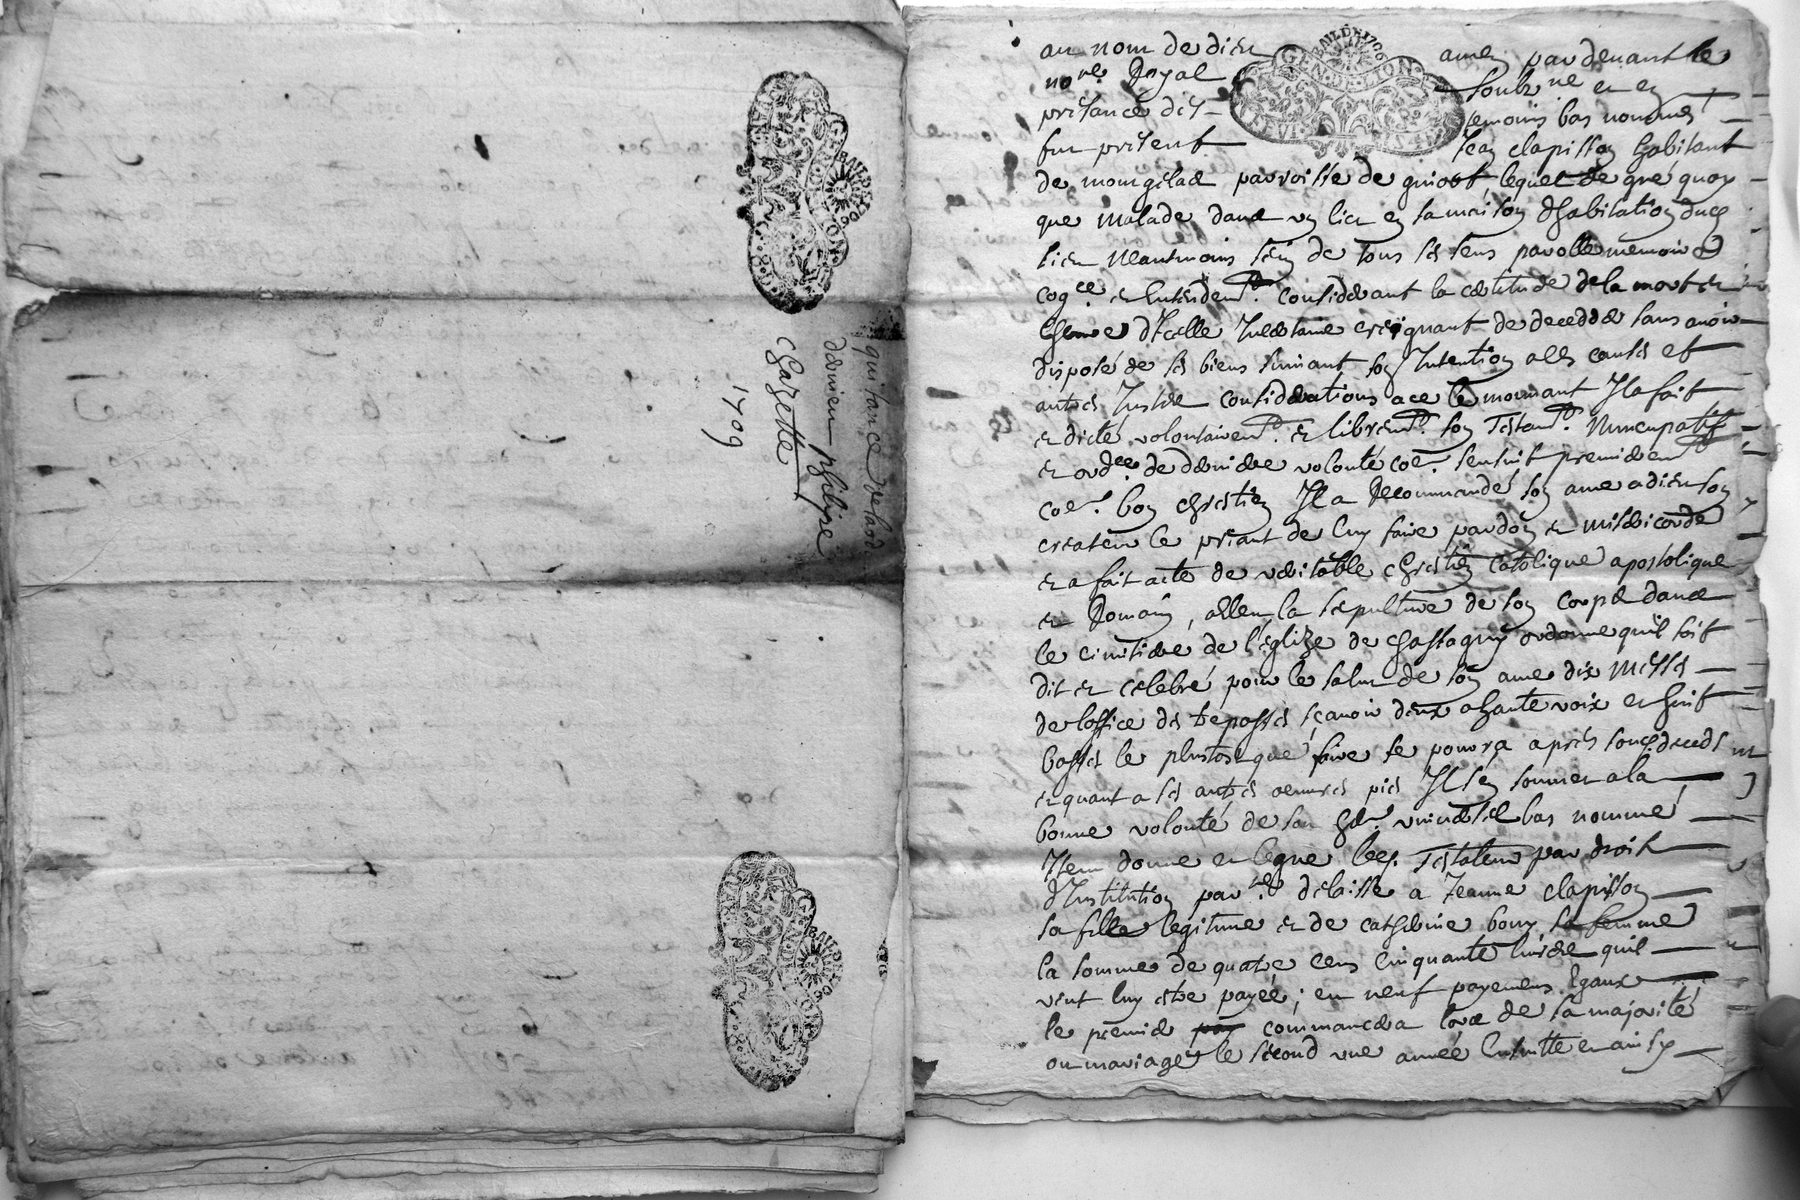 quitance de lods
damien philipe
chazette
1709
GEN. DE LION
BAIL DE 1706
GEN. DE LION
BAIL DE 1706
GEN. DE LION
BAIL DE 1706
au nom de dieu amen pardevant le
no.re Royal soub.ne et en
presance des temoins bas nommés
fut present Jean clapisson habitant
de mongelas parroisse de lequel de gre quoy
que malade dans un lict en sa maison dhabitation dud
lieu neantmoins sein de tous ses sens parolle memoire &
cog.ce et Entendem.t considerant la certitude de la mort et
lheure dIcelle Incertaine creignant de decedder sans avoir
disposé de ses biens suivant son Intention a ces causes et
autres Justes considerations a ce le mouvant Il a fait
et dicté volontairem.t et librem.t son Testam.t Nuncupatif
et ord.ce de derniere volonté co.e sensuit premierem.t
co.e bon chrestien Il a Recommandé son ame a dieu son
createur le priant de luy faire pardon et misericorde
et a fait acte de veritable chrestien catolique apostolique
et Romain, esleu la sepulture de son corps dans
le cimitiere de l'eglize de chassagny ordonne quil soit
dit et celebré pour le salut de son ame dix Messes
de loffice des trepasses sçavoir deux a haute voix et huit
basses le plustost que faire se pourra apres soud. deceds
et quant a ses autres oeuvres pies Il sen soumet a la
bonne volonté de son her. universel bas nommé
Item donne et legue led. Testateur par droit
dInstitution par.re delaisse a Jeanne clapisson
sa fille legitime et de catherine bouy sa femme
la somme de quatre cens cinquante livres quil
veut luy estre payée; en neuf payemens Egaux
le premier commancera lors de sa majorité
ou mariage le second une année Ensuitte et ainsy